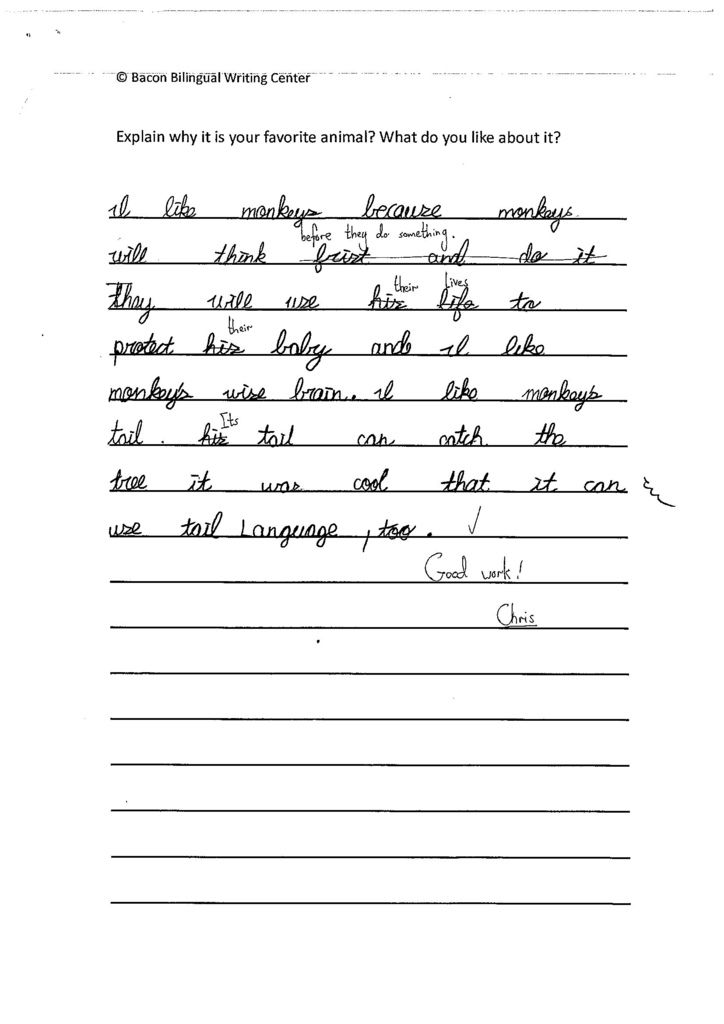 © Bacon Bilingual Writing Center
Explain why it is your favorite animal? What do you like about it?
I like monkeys because monkeys.
before they do something.
will think frist and do it
their lives
They will use his life to
their
protect his baby and I like
monkey's wise brain. I like monkeys
Its
tail. his tail can catch the
tree it was cool that it can
use tail Language, too. ✓
Good work!
Chris